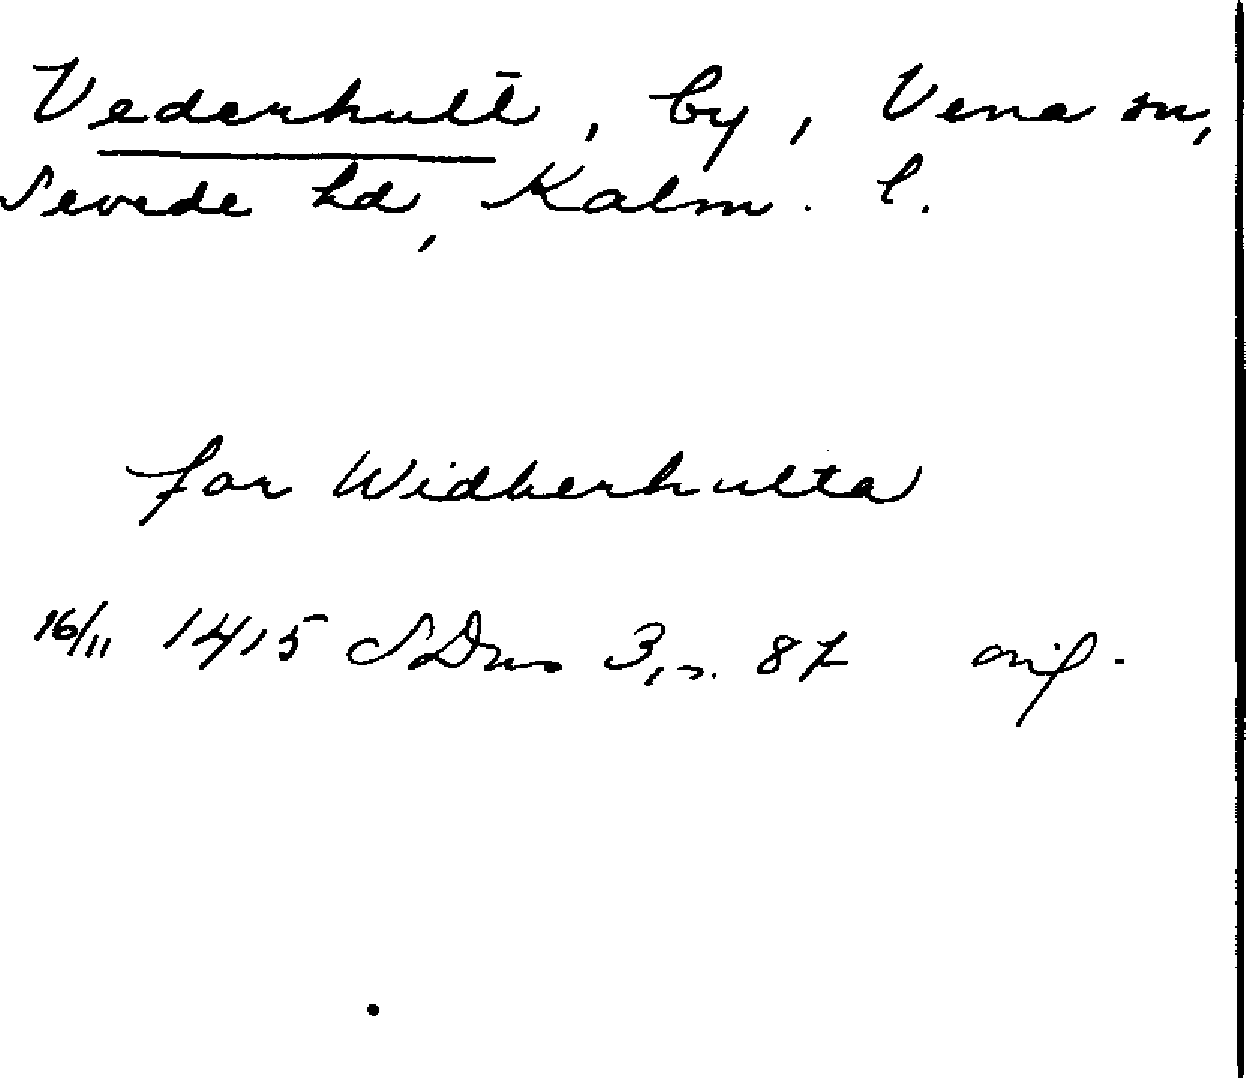 Vederhult, by, Vena sn,
Sevede hd, Kalm. l.
for Widherhulta
16/11 1415 SDns 3, s. 87 orig.